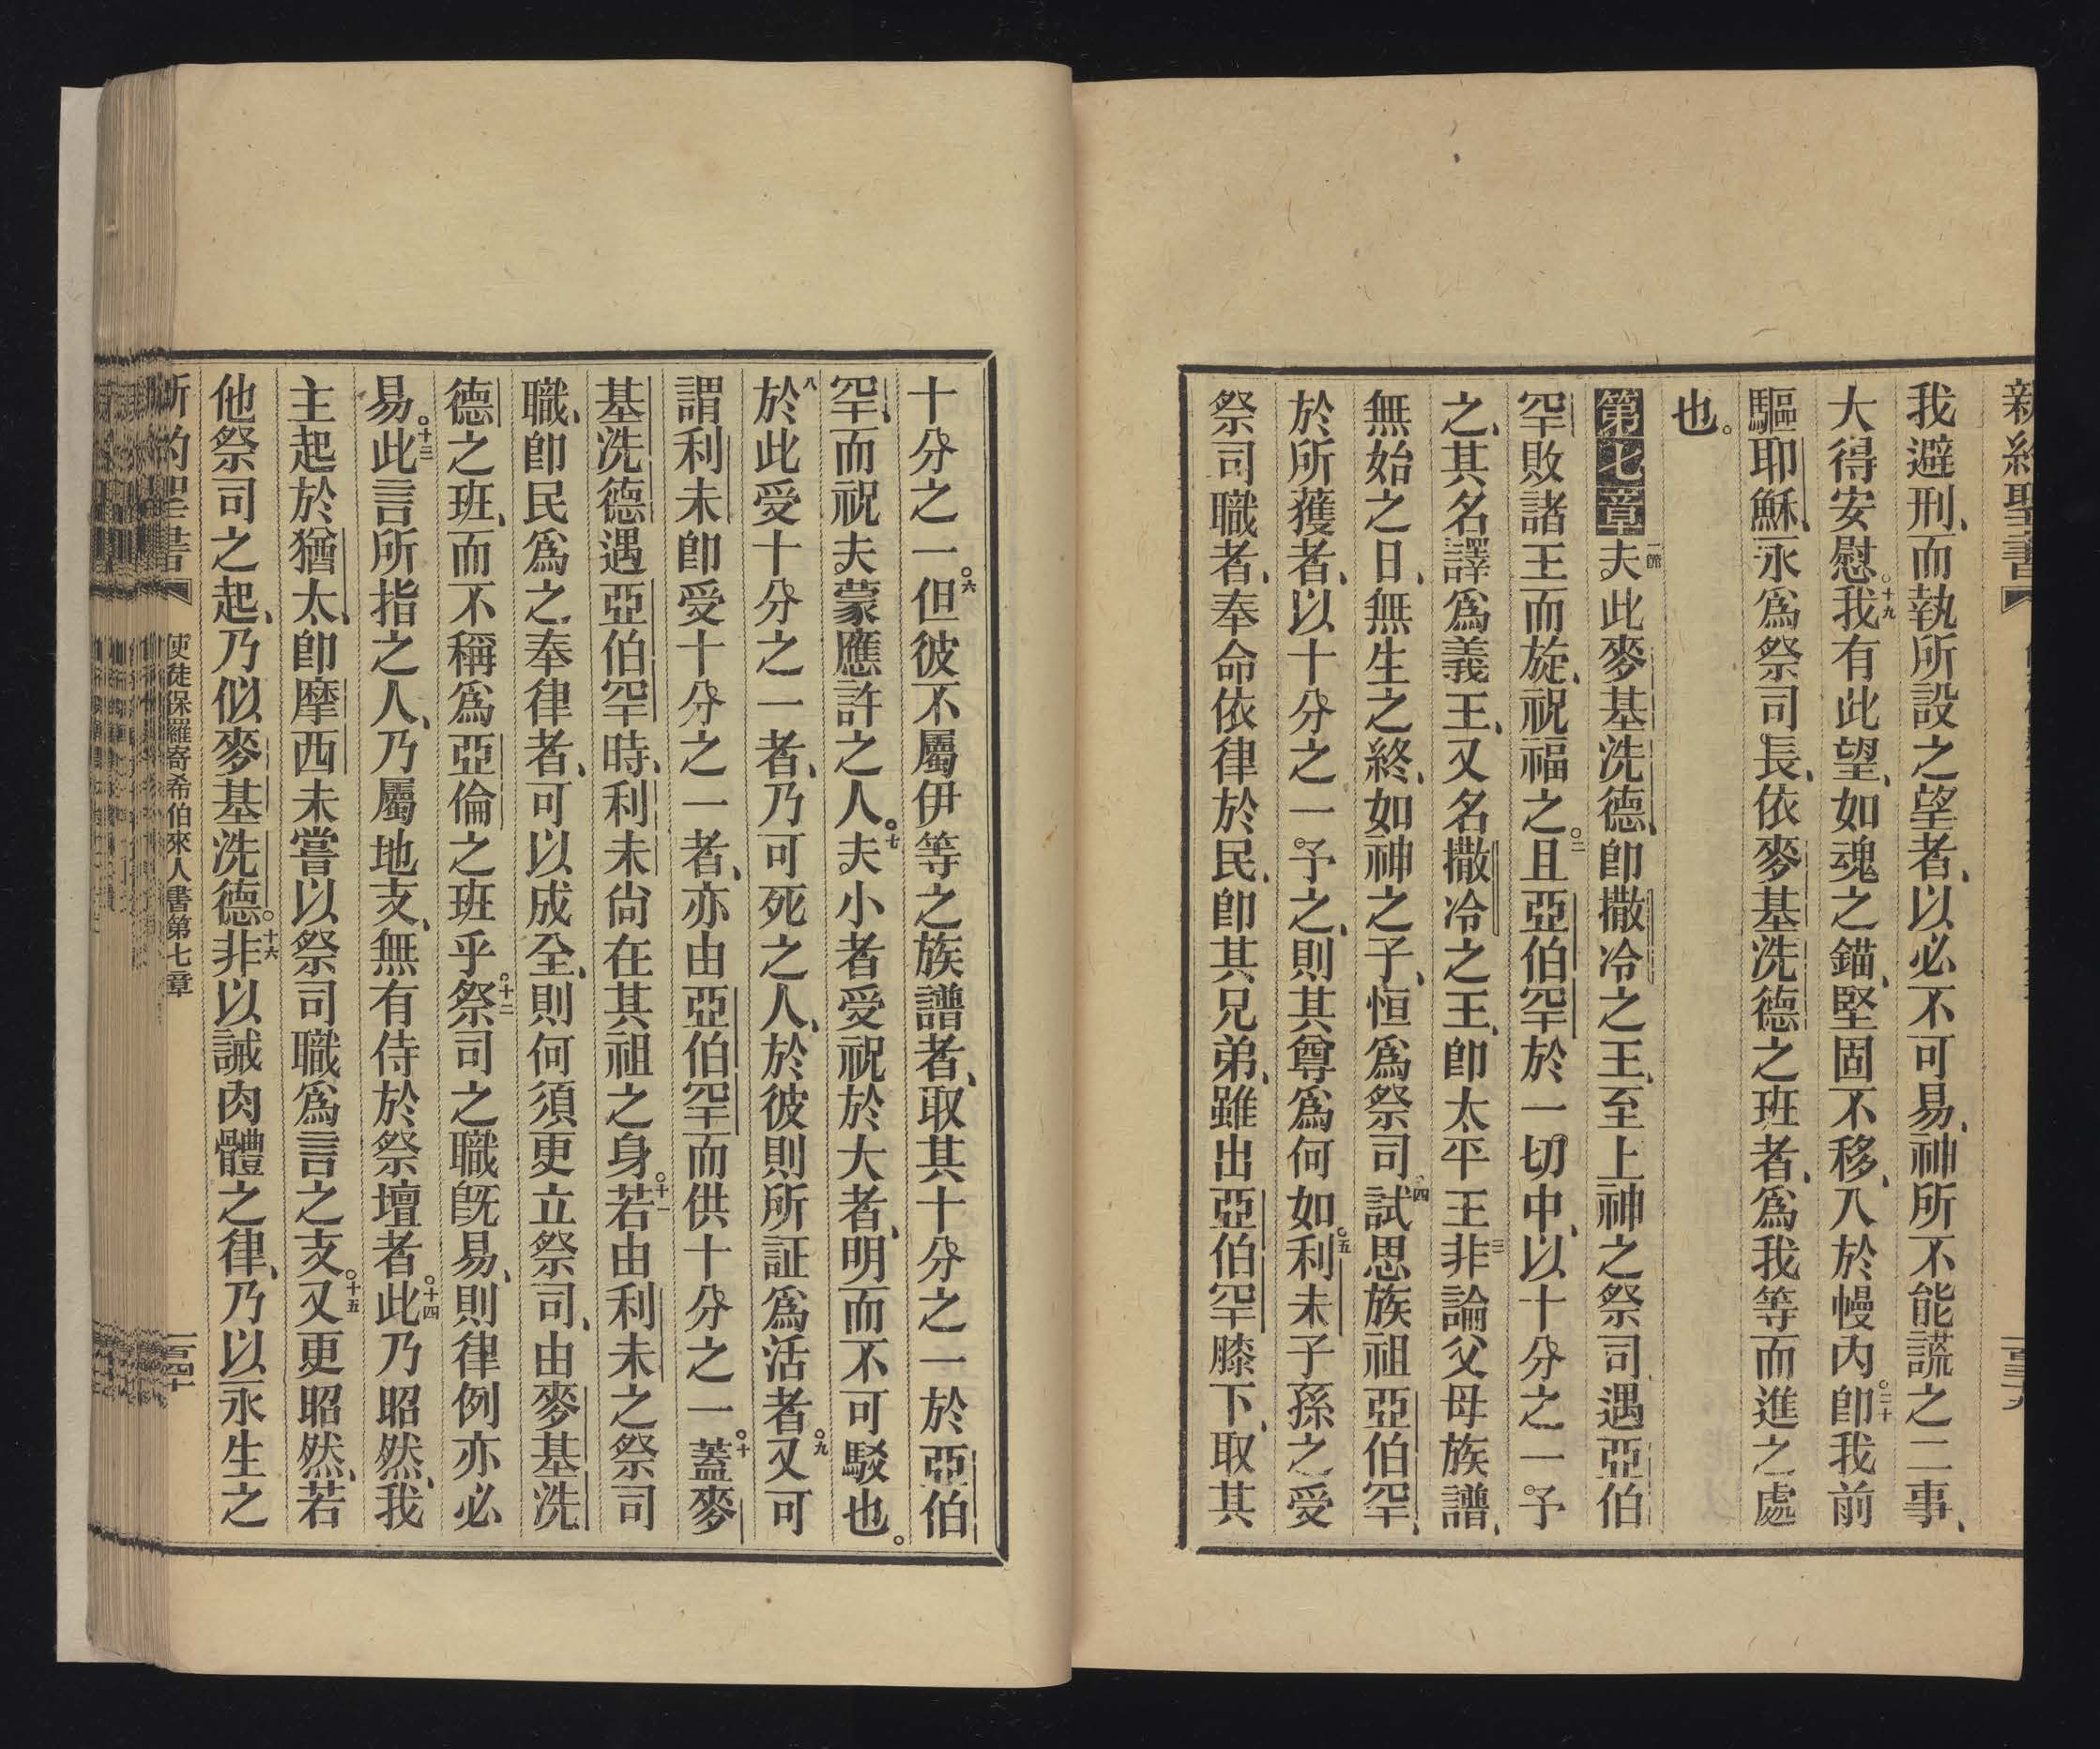 新約聖書
一百三十九
我避刑、而執所設之望者、以必不可易、神所不能謊之二事、
大得安慰。十九我有此望、如魂之錨、堅固不移、入於幔內。二十卽我前
驅耶穌、永爲祭司長、依麥基洗德之班者、爲我等而進之處
也。
第七章一節夫此麥基洗德、卽撒冷之王、至上神之祭司、遇亞伯
罕敗諸王而旋、祝福之。二且亞伯罕於一切中、以十分之一予
之、其名譯爲義王、又名撒冷之王、卽太平王。三非論父母族譜、
無始之日、無生之終、如神之子、恒爲祭司。四試思族祖亞伯罕、
於所獲者、以十分之一予之、則其尊爲何如。五利未子孫之受
祭司職者、奉命依律於民、卽其兄弟、雖出亞伯罕膝下、取其
十分之一。六但彼不屬伊等之族譜者、取其十分之一於亞伯
罕、而祝夫蒙應許之人。七夫小者受祝於大者、明而不可駁也。
八於此受十分之一者、乃可死之人、於彼則所証爲活者。九又可
謂利未卽受十分之一者、亦由亞伯罕而供十分之一。十蓋麥
基洗德遇亞伯罕時、利未尙在其祖之身。十一若由利未之祭司
職、卽民爲之奉律者、可以成全、則何須更立祭司、由麥基洗
德之班、而不稱爲亞倫之班乎。十二祭司之職旣易、則律例亦必
易。十三此言所指之人、乃屬地支、無有侍於祭壇者。十四此乃昭然、我
主起於猶太、卽摩西未嘗以祭司職爲言之支。十五又更昭然、若
他祭司之起、乃似麥基洗德。十六非以誡肉體之律、乃以永生之
新約聖書
使徒保羅寄希伯來人書第七章
一百四十